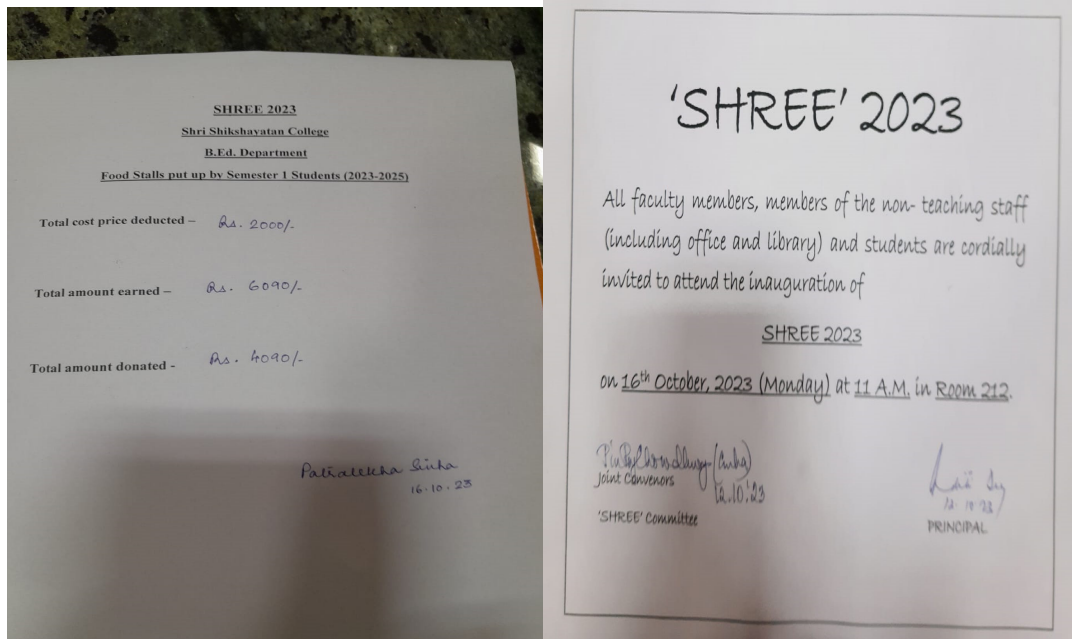 SHREE 2023
Shri Shikshayatan College
B.Ed. Department
Food Stalls put up by Semester 1 Students (2023-2025)
Total cost price deducted – Rs. 2000/-
Total amount earned – Rs. 6090/-
Total amount donated - Rs. 4090/-
Patralekha Sinha
16.10.23
'SHREE' 2023
All faculty members, members of the non- teaching staff
(including office and library) and students are cordially
invited to attend the inauguration of
SHREE 2023
on 16th October, 2023 (Monday) at 11 A.M. in Room 212.
Joint Convenors
12.10.'23
12.10.23
'SHREE' Committee
PRINCIPAL